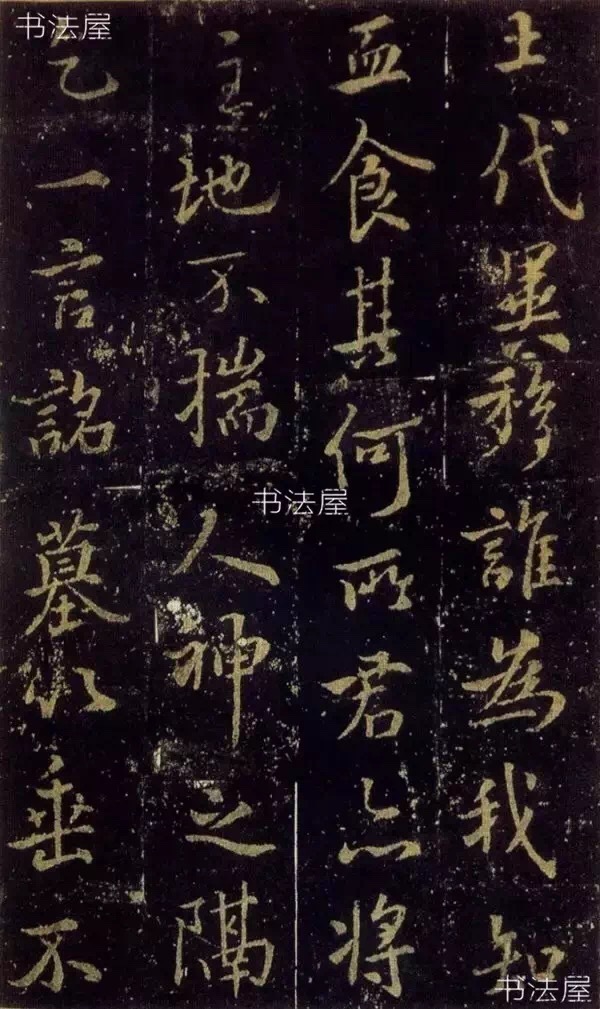 土代異移誰為我知
血食其何所君亦將
主地不揣人神之隔
乞一言銘墓以垂不
书法屋
书法屋
书法屋